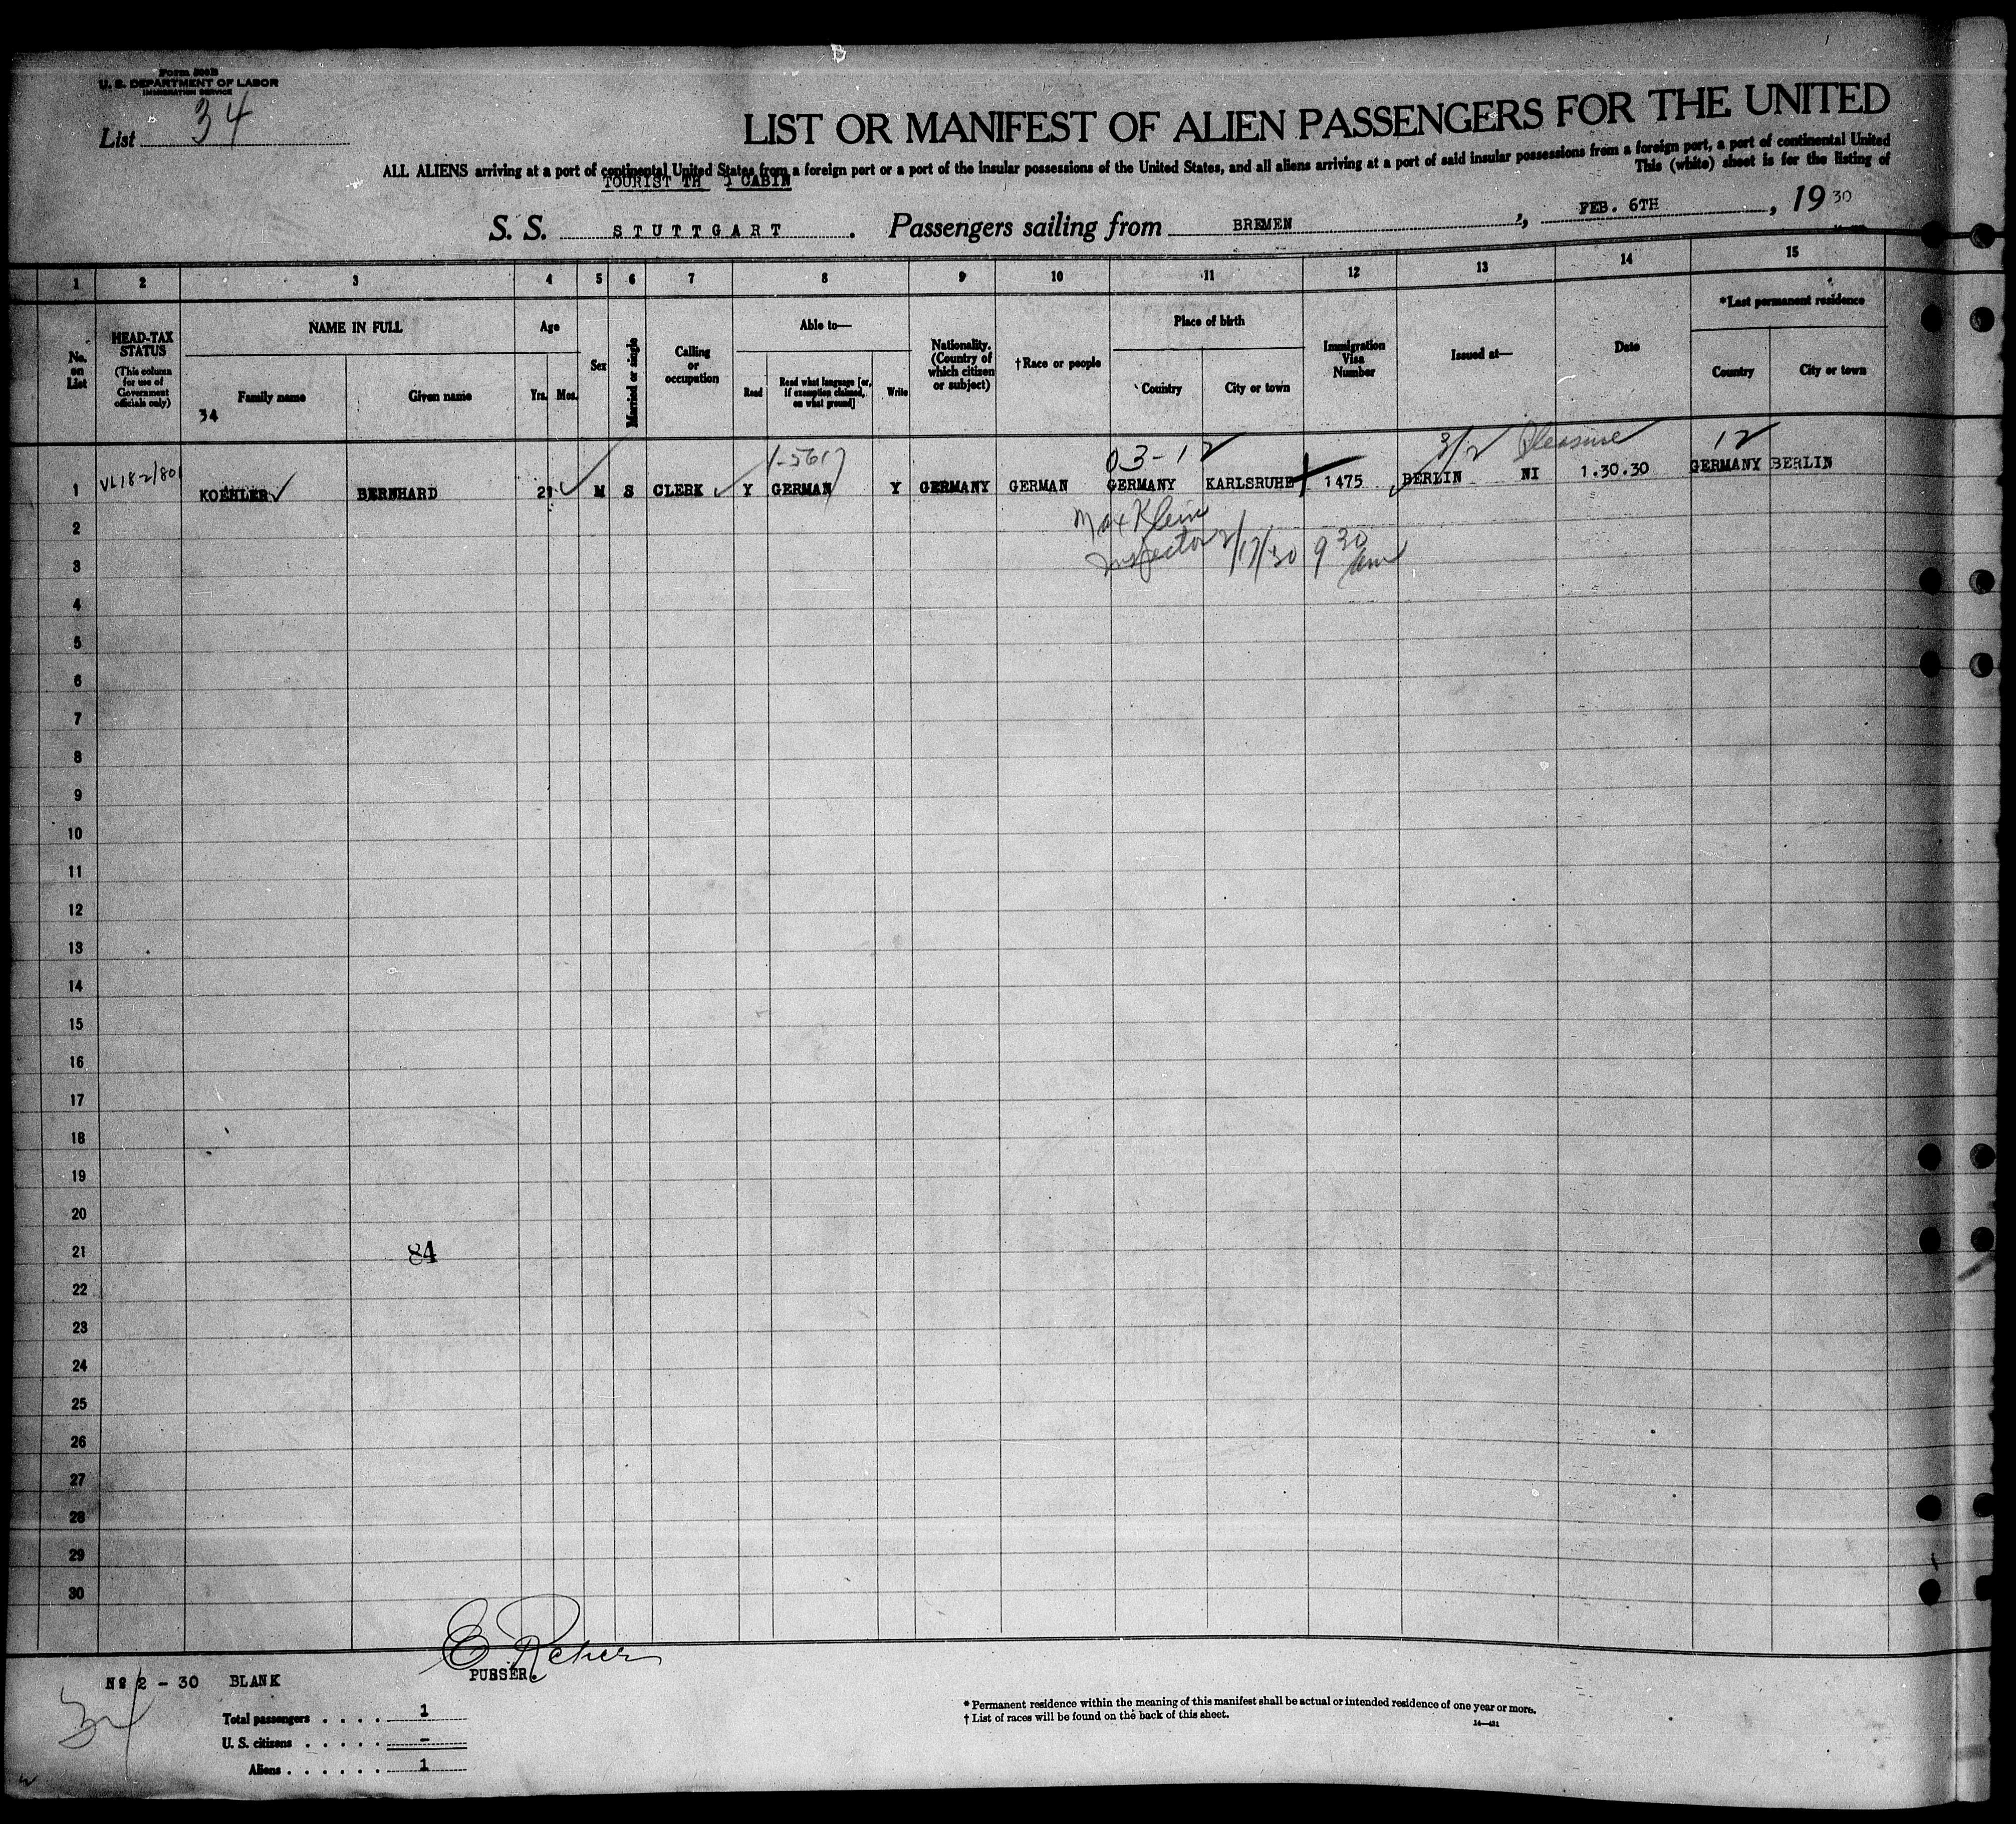 Form 500B
U. S. DEPARTMENT OF LABOR
IMMIGRATION SERVICE
List 34
LIST OR MANIFEST OF ALIEN PASSENGERS FOR THE UNITED
ALL ALIENS arriving at a port of continental United States from a foreign port or a port of the insular possessions of the United States, and all aliens arriving at a port of said insular possessions from a foreign port, a port of continental United
This (white) sheet is for the listing of
TOURIST TH CABIN
S. S. STUTTGART. Passengers sailing from BREMEN, FEB. 6TH, 1930
1 2 3 4 5 6 7 8 9 10 11 12 13 14 15
No. on List
HEAD-TAX STATUS
(This column for use of Government officials only)
NAME IN FULL
Family name
Given name
34
Age
Yrs. Mos.
Sex
Married or single
Calling or occupation
Able to—
Read
Read what language [or, if exemption claimed, on what ground]
Write
Nationality. (Country of which citizen or subject)
†Race or people
Place of birth
Country
City or town
Immigration Visa Number
Issued at—
Date
*Last permanent residence
Country
City or town
03-12 3/2 Pleasure 12
1 VL182/801 KOEHLER BERNHARD 21 M S CLERK Y GERMAN Y GERMANY GERMAN GERMANY KARLSRUHE 1475 BERLIN NI 1.30.30 GERMANY BERLIN
2 Max Klein
3 Inspector 2/17/30 9 30 am
4
5
6
7
8
9
10
11
12
13
14
15
16
17
18
19
20
21 84
22
23
24
25
26
27
28
29
30
E Reher
PURSER.
No 2 - 30 BLANK
34
Total passengers . . . . 1
U. S. citizens . . . . . -
Aliens . . . . . . 1
* Permanent residence within the meaning of this manifest shall be actual or intended residence of one year or more.
† List of races will be found on the back of this sheet.
14—431